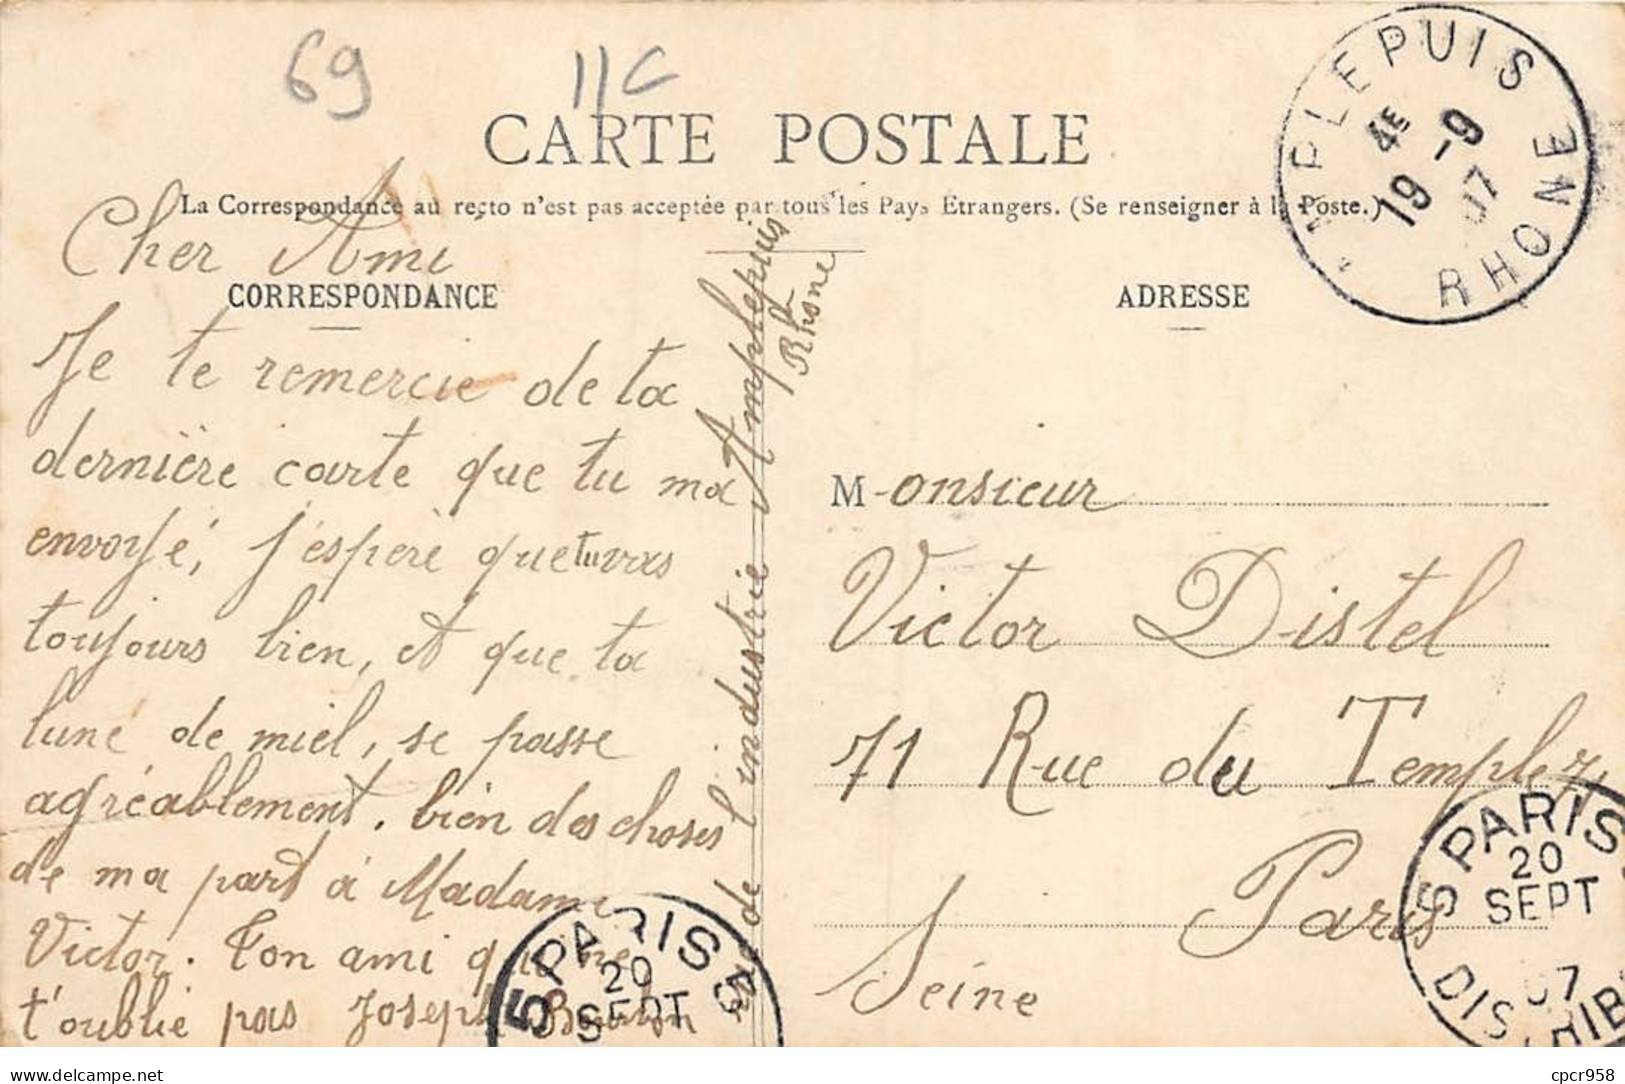 69
11C
CARTE POSTALE
La Correspondance au recto n'est pas acceptée par tous les Pays Etrangers. (Se renseigner à la Poste.)
CORRESPONDANCE
Cher Ami
Je te remercie de ta
dernière carte que tu ma
envoyé, j'éspère que tu vas
toujours bien, et que ta
lune de miel, se passe
agréablement. bien des choses
de ma part à Madame
Victor. Ton ami qui ne
t'oublie pas Joseph
rue de l'industrie Amplepuis
Rhône
ADRESSE
M-onsieur
Victor Distel
71 Rue du Temple
Paris
Seine
MPLEPUIS
4E
19 -9
07
RHONE
5 PARIS 5
20
SEPT
5 PARIS
20
SEPT
07
DISTRIB
delcampe.net
cpcr958